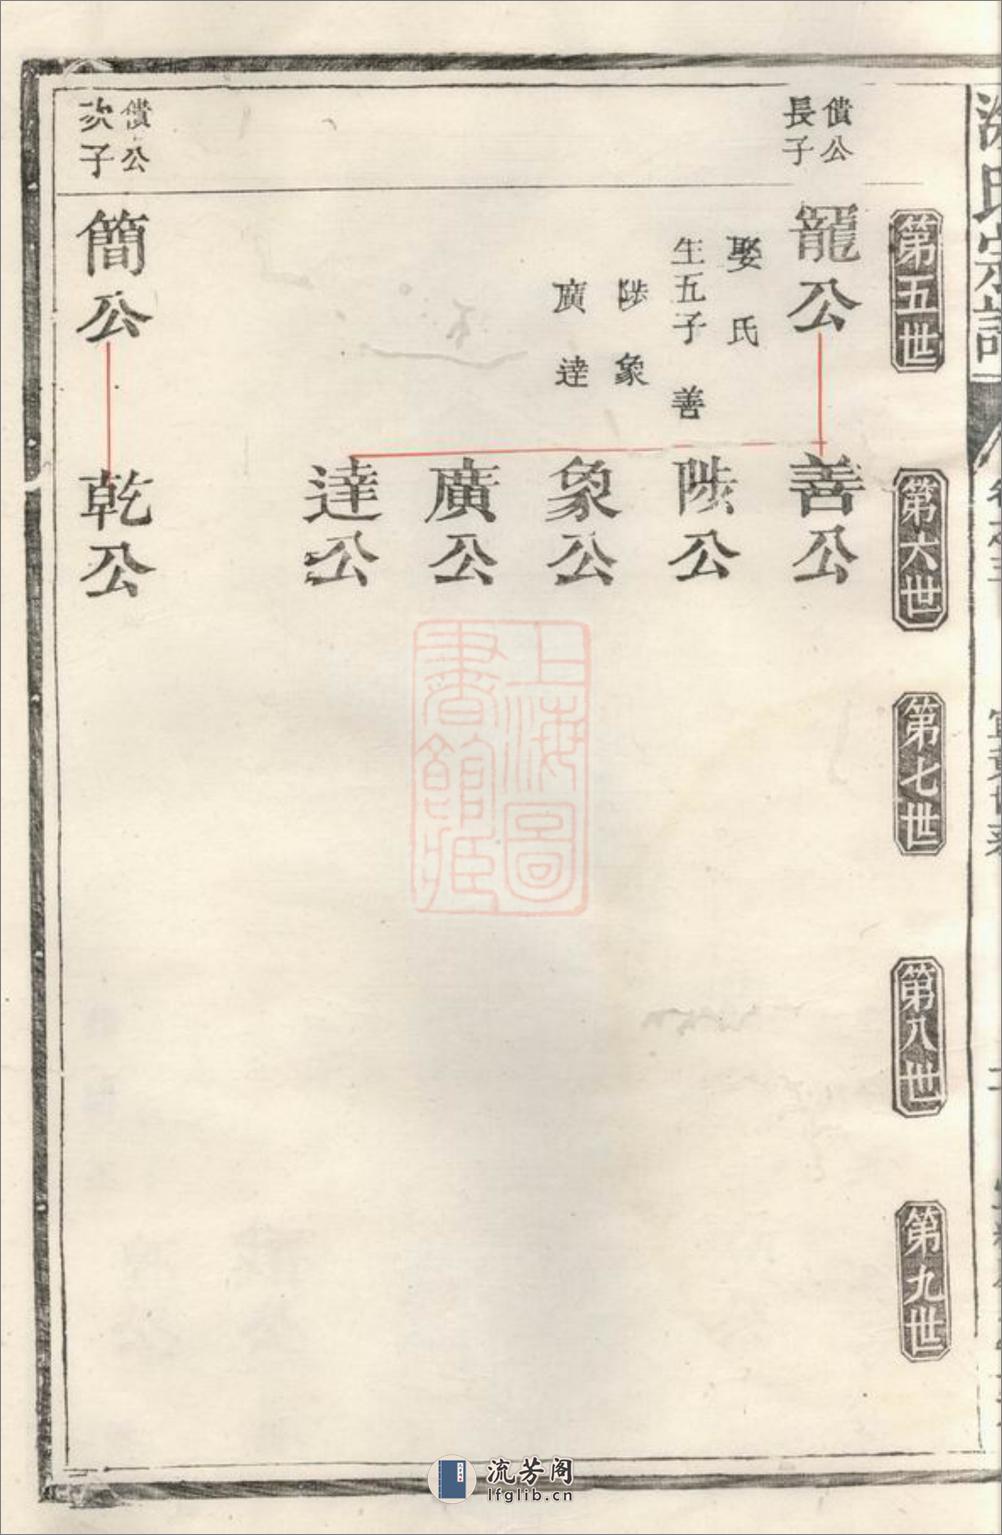 氏宗譜
第五世
第六世
第七世
第八世
第九世
僨公
長子
籠公
娶 氏
生五子 善
陟 象
廣 達
善公
陟公
象公
廣公
達公
僨公
次子
簡公
乾公
上海圖
書館藏
流芳阁
lfglib.cn